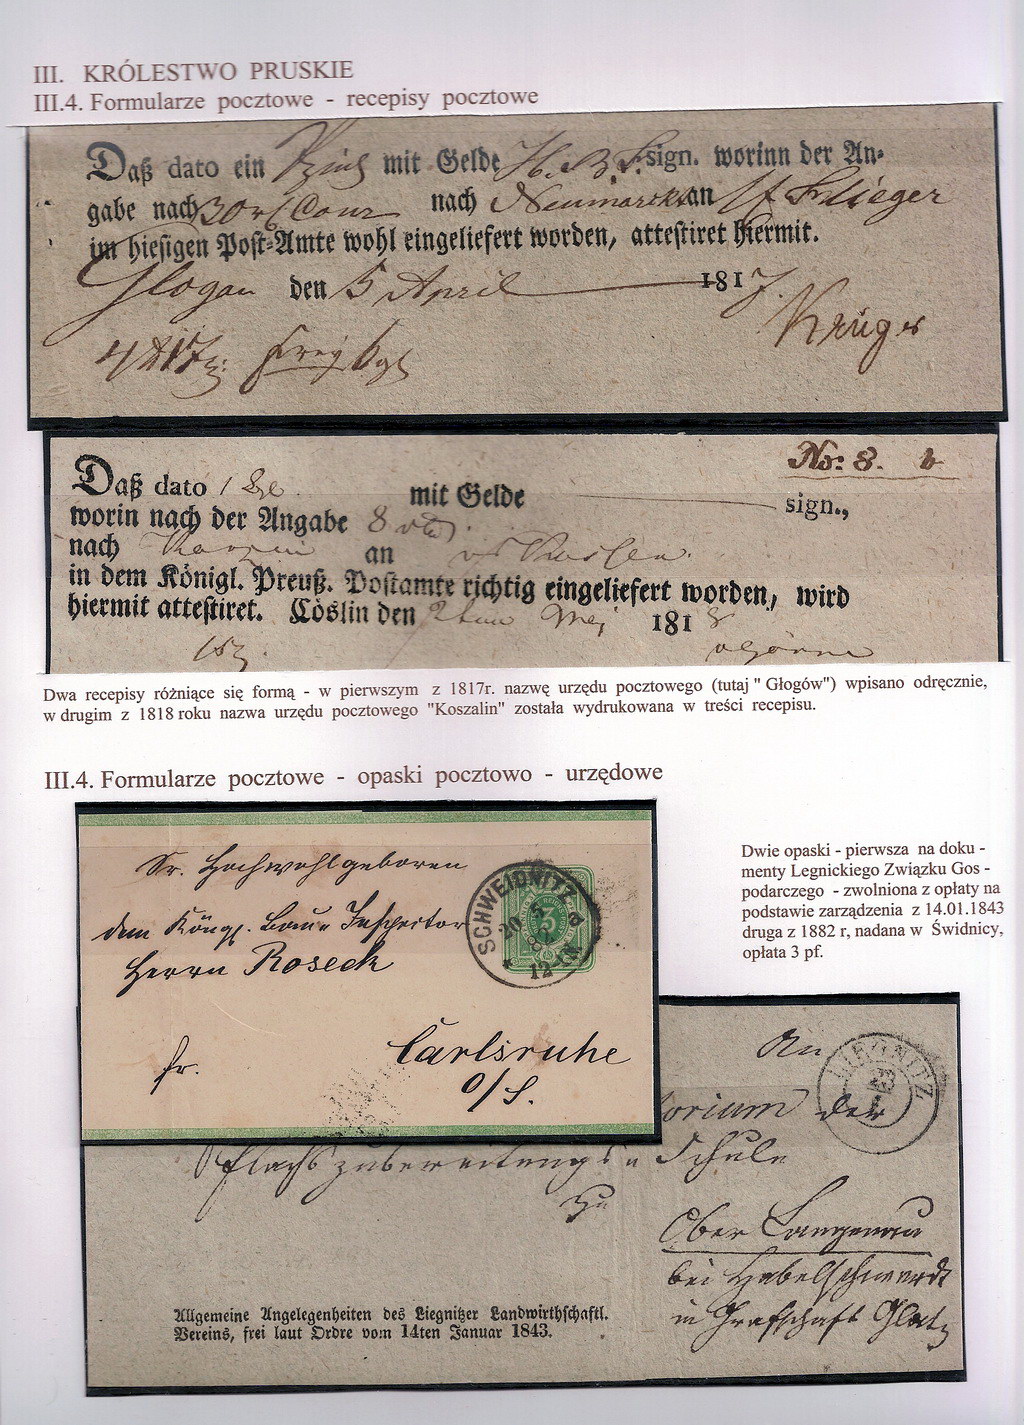 III. KRÓLESTWO PRUSKIE
III.4. Formularze pocztowe - recepisy pocztowe
Daß dato ein mit Gelde H. B. sign. worinn der An-
gabe nach 30 Cour nach Neumarck an Slieger
im hiesigen Post-Amte wohl eingeliefert worden, attestiret hiermit.
Glogau den 5 April 1817.
Krüger
No: 8.
Daß dato 1 mit Gelde sign.,
worin nach der Angabe 8
nach an
in dem Königl. Preuß. Postamte richtig eingeliefert worden, wird
hiermit attestiret. Cöslin den May 1818
Dwa recepisy różniące się formą - w pierwszym z 1817r. nazwę urzędu pocztowego (tutaj " Głogów") wpisano odręcznie,
w drugim z 1818 roku nazwa urzędu pocztowego "Koszalin" została wydrukowana w treści recepisu.
III.4. Formularze pocztowe - opaski pocztowo - urzędowe
Sr. Hochwohlgeboren
dem Königl. Bau= Inspector
Herrn Roseck
fr. Carlsruhe
O/S.
SCHWEIDNITZ
20 5
3
12-1N
Dwie opaski - pierwsza na doku -
menty Legnickiego Związku Gos -
podarczego - zwolniona z opłaty na
podstawie zarządzenia z 14.01.1843
druga z 1882 r, nadana w Świdnicy,
opłata 3 pf.
An
LIEGNITZ
23
orium der
Flachszubereitungs= Schule
zu
Ober Langenau
bei Habelschwerdt
in Grafschaft Glatz
Allgemeine Angelegenheiten des Liegnitzer Landwirthschaftl.
Vereins, frei laut Ordre vom 14ten Januar 1843.